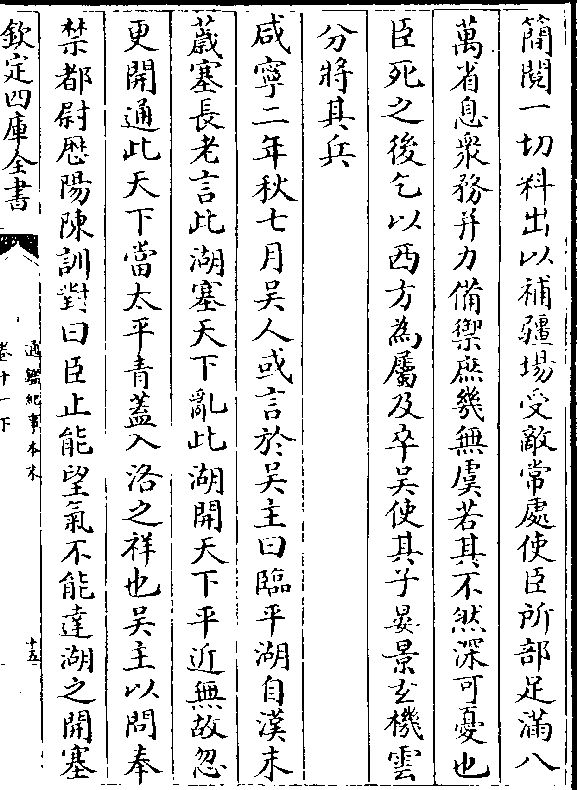 簡閱一切料出以補疆場受敵常處使臣所部足滿八
萬省息衆務并力備禦庶幾無虞若其不然深可憂也
臣死之後乞以西方為屬及卒吳使其子晏景玄機雲
分將其兵
咸寧二年秋七月吳人或言於吳主曰臨平湖自漢末
薉塞長老言此湖塞天下亂此湖開天下平近無故忽
更開通此天下當太平青蓋入洛之祥也吳主以問奉
禁都尉歷陽陳訓對曰臣止能望氣不能達湖之開塞
欽定四庫全書
通鑑紀事本末
卷十一下
十五